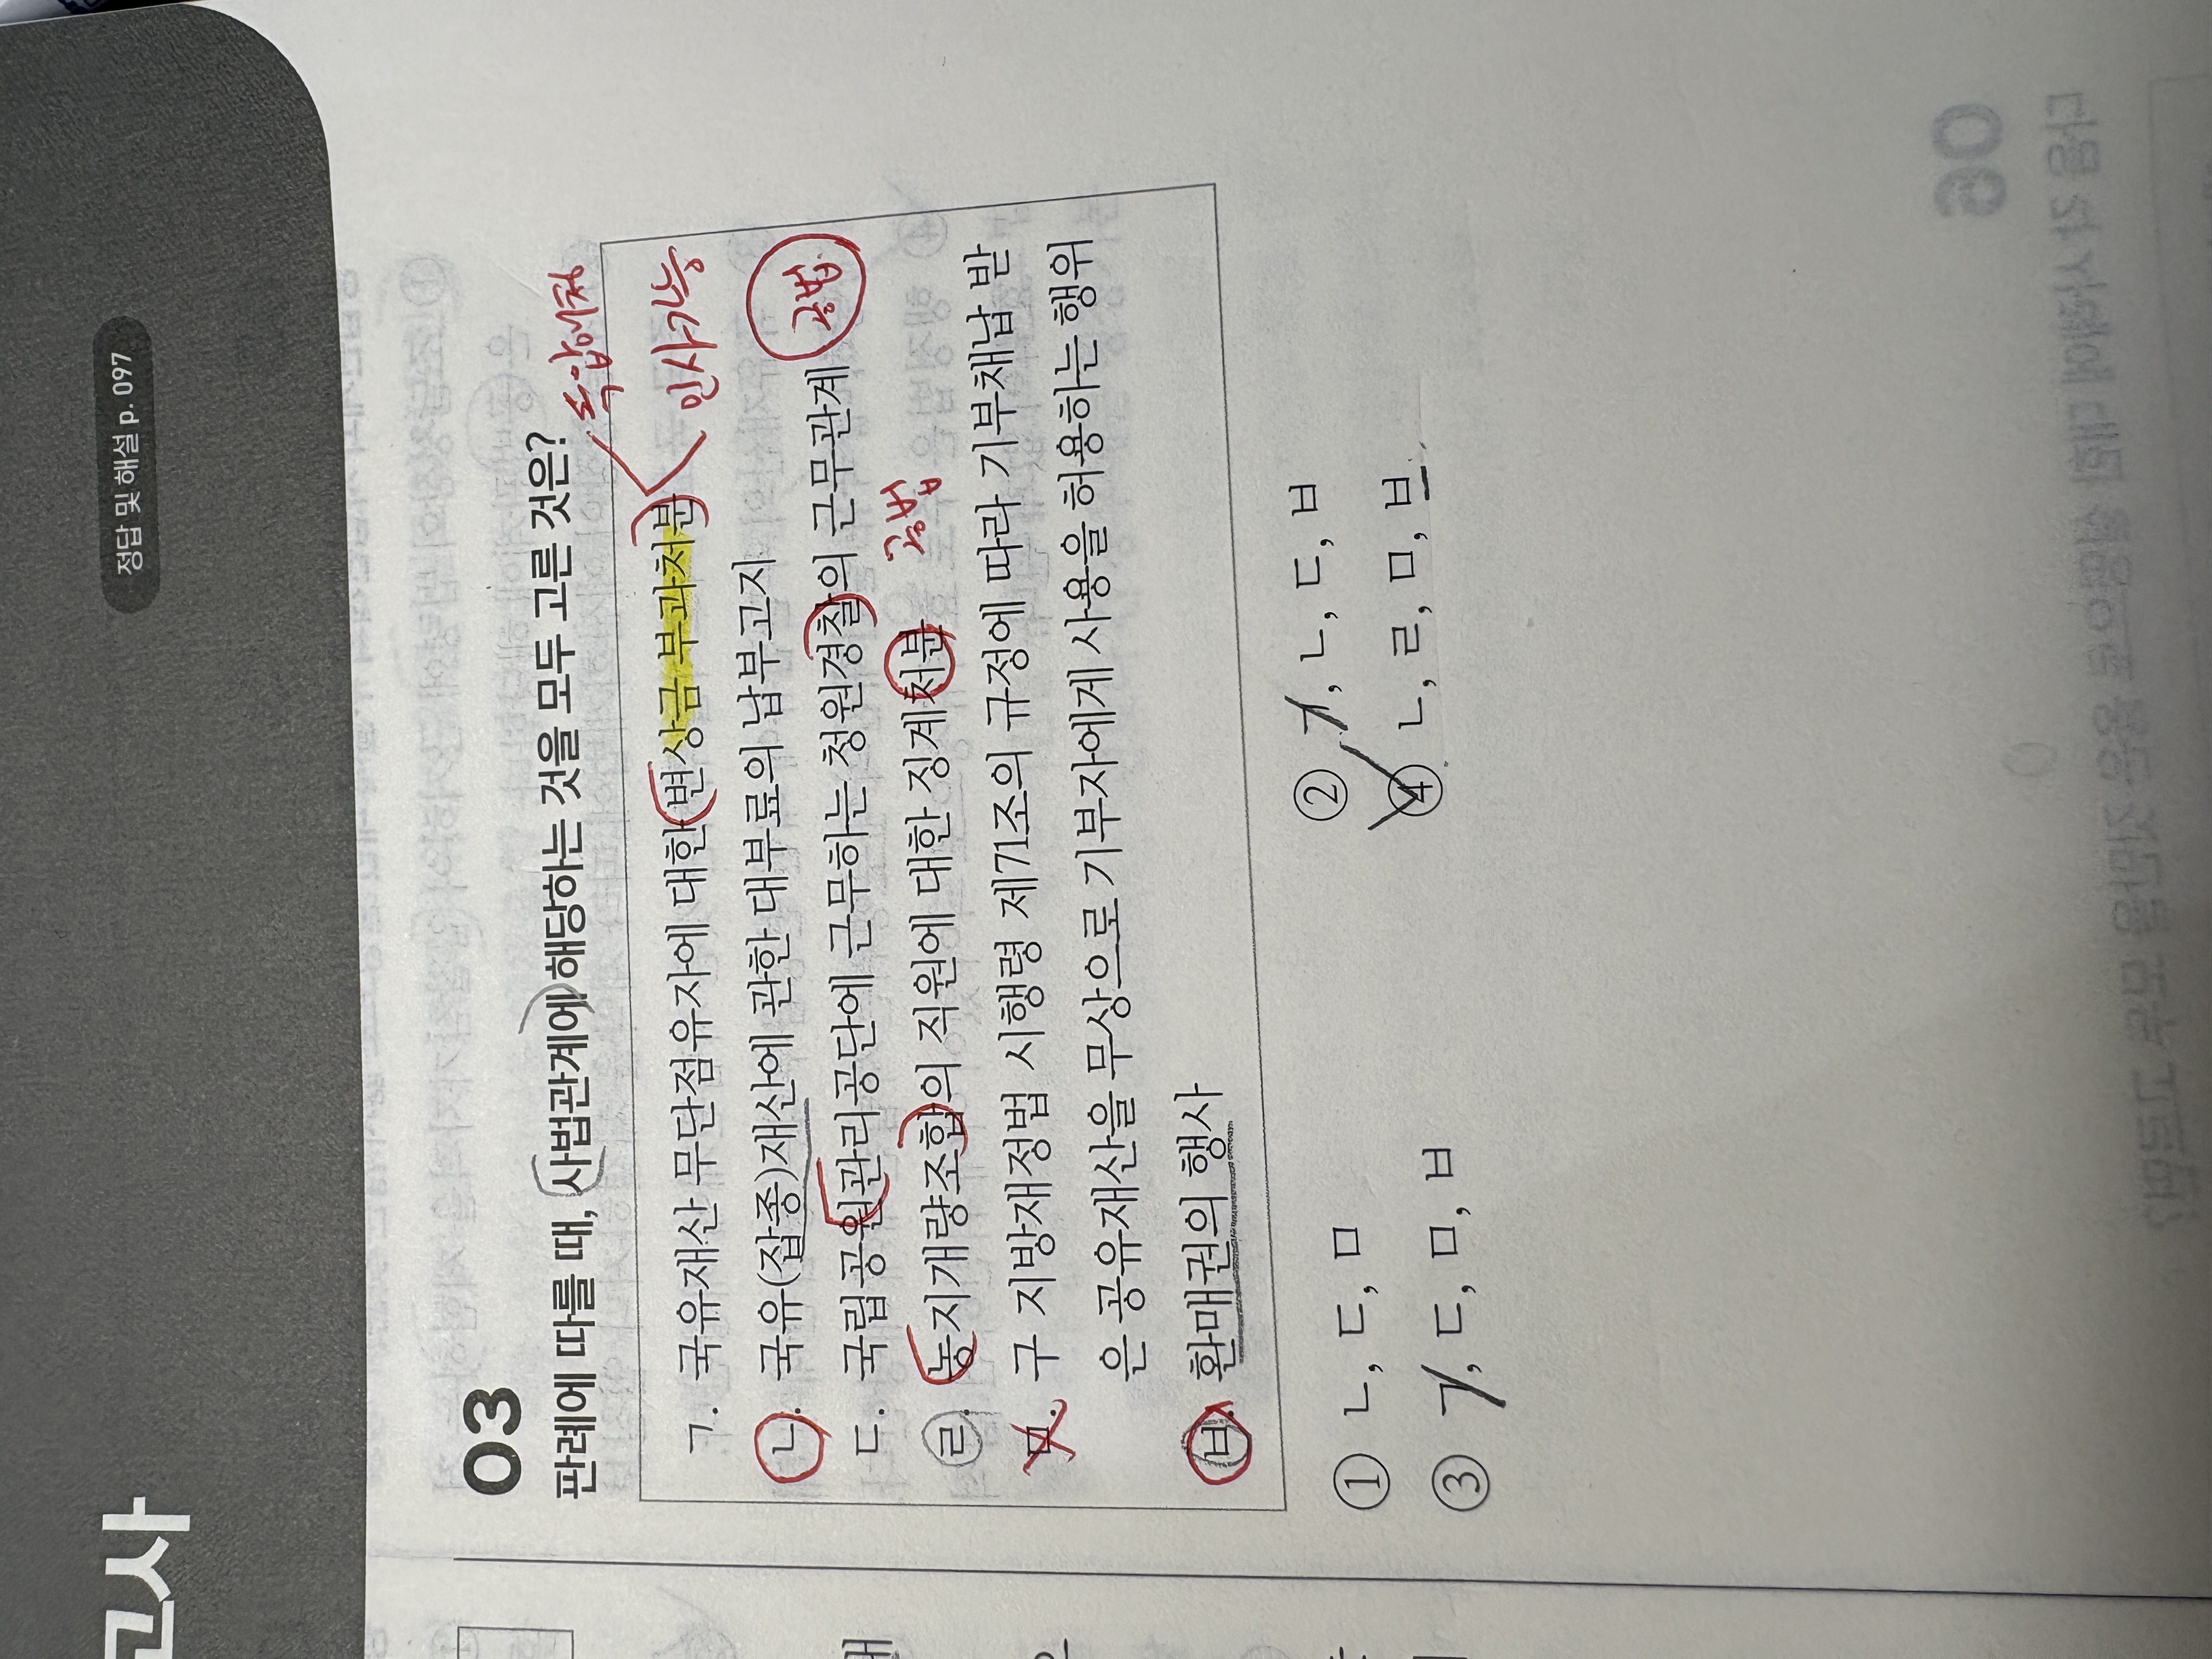 고사
정답 및 해설 p. 097
03
판례에 따를 때, 사법관계에 해당하는 것을 모두 고른 것은?
ㄱ. 국유재산 무단점유자에 대한 변상금 부과처분
인사가능
ㄴ. 국유(잡종)재산에 관한 대부료의 납부고지
ㄷ. 국립공원관리공단에 근무하는 청원경찰의 근무관계
공법
ㄹ. 농지개량조합의 직원에 대한 징계처분
공법
ㅁ. 구 지방재정법 시행령 제71조의 규정에 따라 기부채납 받
은 공유재산을 무상으로 기부자에게 사용을 허용하는 행위
ㅂ. 환매권의 행사
① ㄴ, ㄷ, ㅁ
② ㄱ, ㄴ, ㄷ, ㅂ
③ ㄱ, ㄷ, ㅁ, ㅂ
④ ㄴ, ㄹ, ㅁ, ㅂ